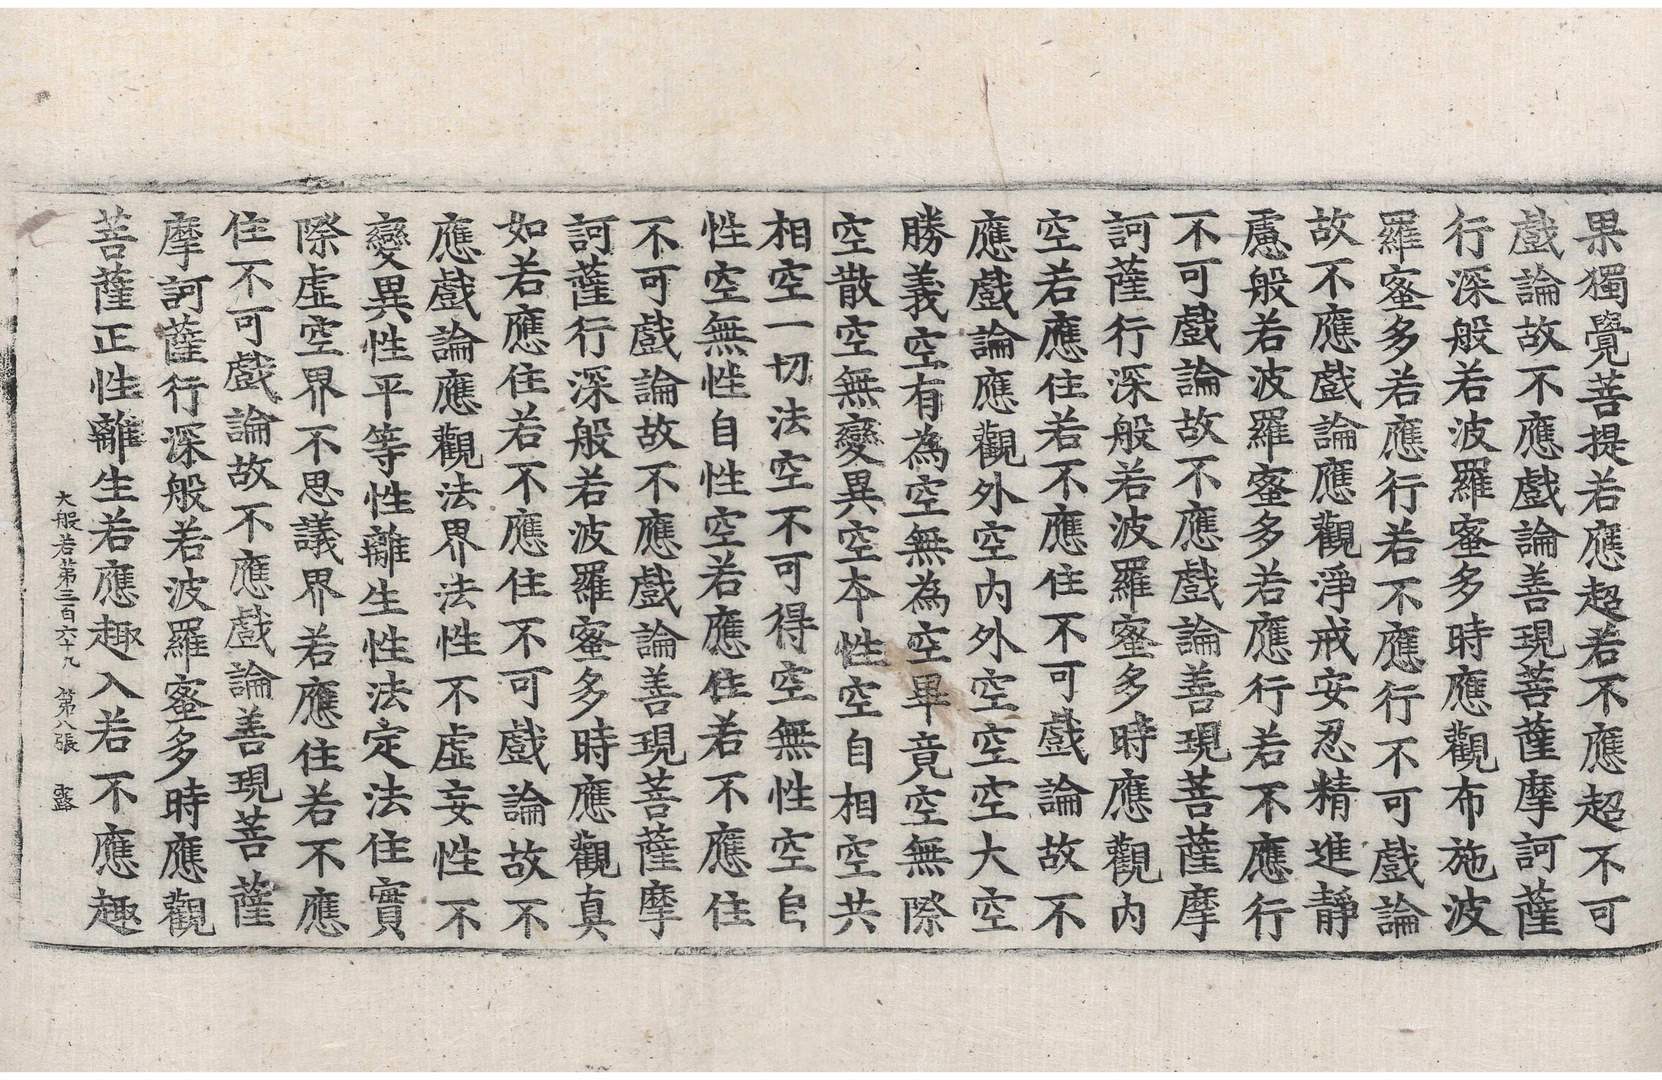 果獨覺菩提若應超若不應超不可
戲論故不應戲論善現菩薩摩訶薩
行深般若波羅蜜多時應觀布施波
羅蜜多若應行若不應行不可戲論
故不應戲論應觀淨戒安忍精進靜
慮般若波羅蜜多若應行若不應行
不可戲論故不應戲論善現菩薩摩
訶薩行深般若波羅蜜多時應觀內
空若應住若不應住不可戲論故不
應戲論應觀外空內外空空空大空
勝義空有為空無為空畢竟空無際
空散空無變異空本性空自相空共
相空一切法空不可得空無性空自
性空無性自性空若應住若不應住
不可戲論故不應戲論善現菩薩摩
訶薩行深般若波羅蜜多時應觀真
如若應住若不應住不可戲論故不
應戲論應觀法界法性不虛妄性不
變異性平等性離生性法定法住實
際虛空界不思議界若應住若不應
住不可戲論故不應戲論善現菩薩
摩訶薩行深般若波羅蜜多時應觀
菩薩正性離生若應趣入若不應趣
大般若第三百六十九 第八張 露